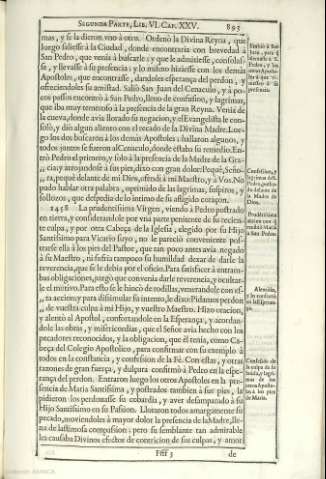 SEGUNDA PARTE, LIB. VI. CAP. XXV. 893
mas, y se la dieron uno à otro. Ordenò la Divina Reyna, que
luego saliesse à la Ciudad, donde encontraria con brevedad à
San Pedro, que venia à buscarle; y que le admitiesse, consolas-
se, y llevasse à su presencia; y lo mismo hiziesse con los demàs
Apostoles, que encontrasse, dandoles esperança del perdon, y
ofreciendoles su amistad. Saliò San Juan del Cenaculo, y à po-
cos passos encontrò à San Pedro, lleno de confusion, y lagrimas,
que iba muy temeroso à la presencia de la gran Reyna. Venia de
la cueva, donde avia llorado su negacion, y el Evangelista le con-
solò, y diò algun aliento con el recado de la Divina Madre. Lue-
go los dos buscaron à los demàs Apostoles; hallaron algunos, y
todos juntos se fueron al Cenaculo, donde estaba su remedio. En-
trò Pedro el primero, y solo à la presencia de la Madre de la Gra-
cia; y arrojandose à sus pies, dixo con gran dolor: Pequè, Seño-
ra, pequè delante de mi Dios, ofendì à mi Maestro, y à Vos. No
pudo hablar otra palabra, oprimido de las lagrimas, suspiros, y
sollozos, que despedia de lo intimo de su afligido coraçon.
1458 La prudentissima Virgen, viendo à Pedro postrado
en tierra, y considerandole por una parte penitente de su recien-
te culpa, y por otra Cabeça de la Iglesia, elegido por su Hijo
Santissimo para Vicario suyo, no le pareciò conveniente pos-
trarse ella à los pies del Pastor, que tan poco antes avia negado
à su Maestro, ni sufria tampoco su humildad dexar de darle la
reverencia, que se le debia por el oficio. Para satisfacer à entram-
bas obligaciones, juzgò que convenia darle reverencia, y ocultar-
le el motivo. Para esto se le hincò de rodillas, venerandole con es-
ta accion; y para dissimular su intento, le dixo: Pidamos perdon
de vuestra culpa à mi Hijo, y vuestro Maestro. Hizo oracion,
y alentò al Apostol, confortandole en la Esperança, y acordan-
dole las obras, y misericordias, que el Señor avia hecho con los
pecadores reconocidos, y la obligacion, que èl tenia, como Ca-
beça del Colegio Apostolico, para confirmar con su exemplo à
todos en la constancia, y confession de la Fè. Con estas, y otras
razones de gran fuerça, y dulçura confirmò à Pedro en la espe-
rança del perdon. Entraron luego los otros Apostoles en la pre-
sencia de Maria Santissima, y postrados tambien à sus pies, la
pidieron los perdonasse su cobardia, y aver desamparado à su
Hijo Santissimo en su Passion. Lloraron todos amargamente su
pecado, moviendoles à mayor dolor la presencia de la Madre, lle-
na de lastimosa compassion; pero su semblante tan admirable
les causaba Divinos efectos de contricion de sus culpas, y amor
Ffff 3 de
Confession, y
lagrimas de S.
Pedro, postra-
do delante de
la Madre de
Dios.